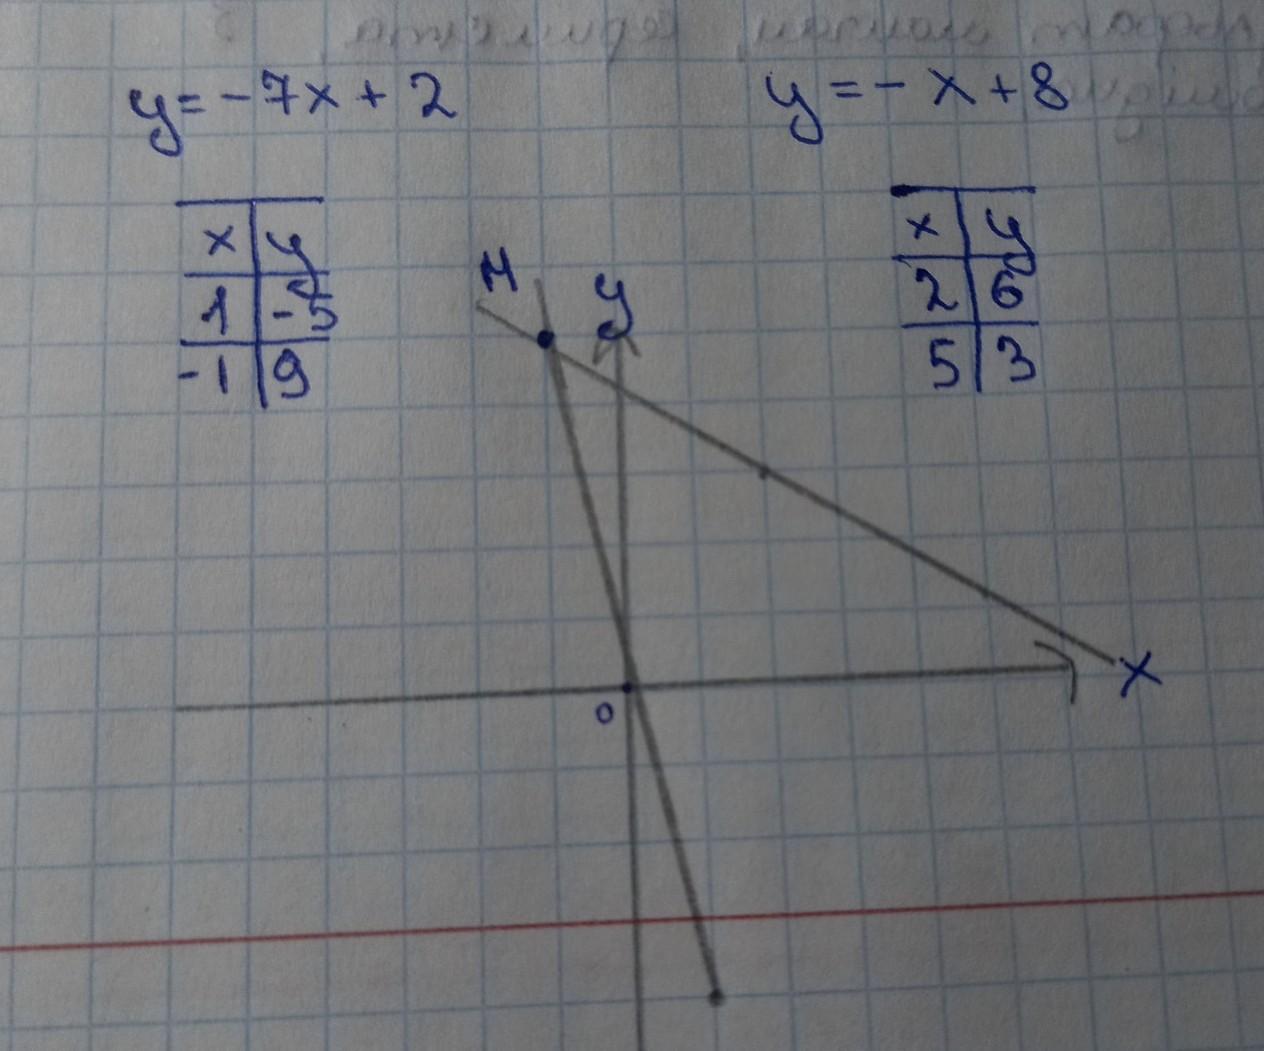 y = - 7x + 2
y = - x + 8
x y
1 -5
-1 9
x y
2 6
5 3
M
y
x
0